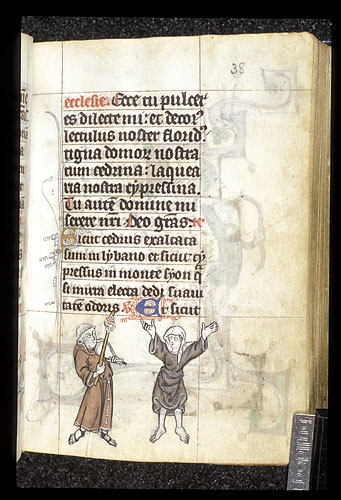 38
ecclesie. Ecce tu pulcer
es dilecte mi: et decor⁹
lectulus noster florid⁹
tigna domoꝝ nostra
rum cedrina: laquea
ria nostra cypressina.
Tu autē domine mi
serere nr̄i. Deo gr̄as.
Sicut cedrus exaltata
sum in lybano et sicut cy
pressus in monte syon q̄
si mirra electa dedi suaui
tatē odoris Et sicut